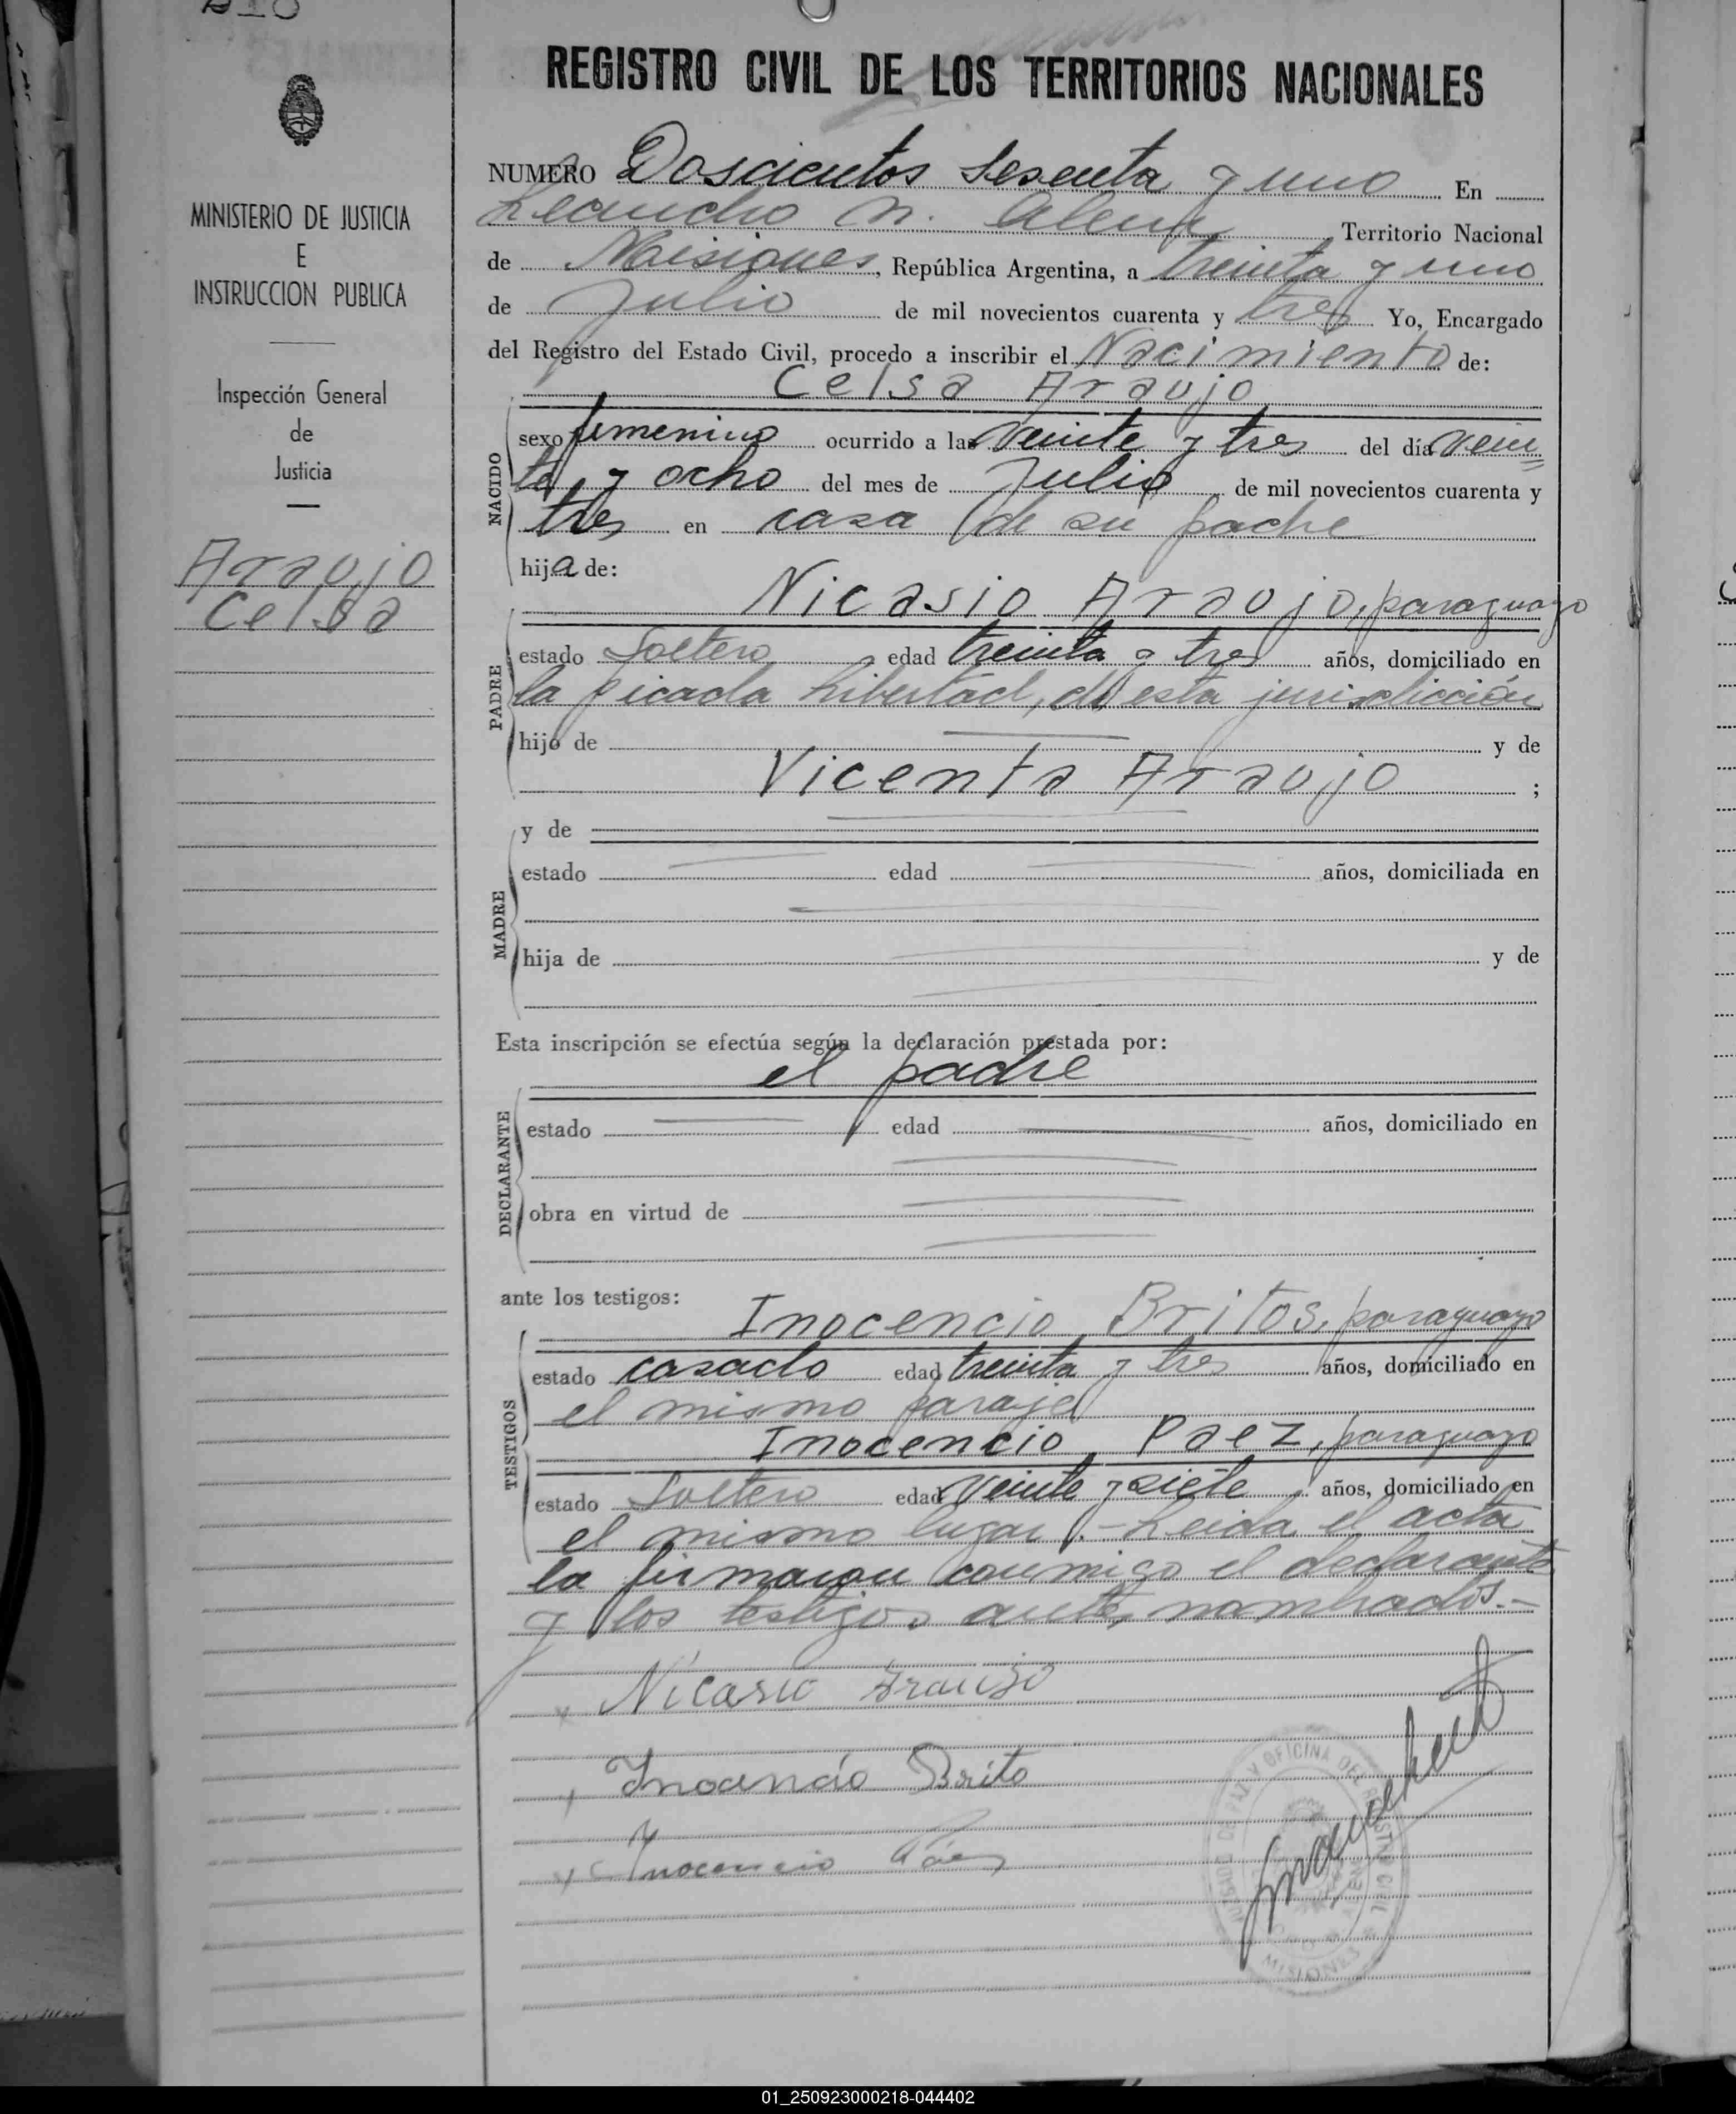 REGISTRO CIVIL DE LOS TERRITORIOS NACIONALES
MINISTERIO DE JUSTICIA
E
INSTRUCCION PUBLICA
Inspección General
de
Justicia
Araujo
Celsa
NUMERO Doscientos Sesenta y uno En
Leandro N. Alem Territorio Nacional
de Misiones, República Argentina, a treinta y uno
de Julio de mil novecientos cuarenta y tres Yo, Encargado
del Registro del Estado Civil, procedo a inscribir el Nacimiento de:
Celsa Araujo
NACIDO
sexo femenino ocurrido a las veinte y tres del día vein=
te y ocho del mes de Julio de mil novecientos cuarenta y
tres en casa de su padre
hija de:
Nicasio Araujo, paraguayo
PADRE
estado Soltero edad treinta y tres años, domiciliado en
la picada Libertad, de esta jurisdicción
hijo de y de
Vicenta Araujo ;
MADRE
y de
estado edad años, domiciliada en
hija de y de
Esta inscripción se efectúa según la declaración prestada por:
el padre
DECLARANTE
estado edad años, domiciliado en
obra en virtud de
ante los testigos:
Inocencio Britos, paraguayo
TESTIGOS
estado casado edad treinta y tres años, domiciliado en
el mismo paraje
Inocencio Paez, paraguayo
estado Soltero edad veinte y siete años, domiciliado en
el mismo lugar.- Leida el acta
la firmaron conmigo el declarante
y los testigos ante nombrados.-
Nicasio Araujo
Inocencio Brito
Inocencio Páez
OFICINA DEL REGISTRO CIVIL
MISIONES
01_250923000218-044402